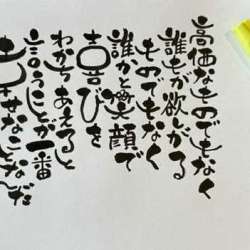 高価なものでもなく
誰もが欲しがる
ものでもなく
誰かと笑顔で
喜びを
わかちあえると
言うことが一番
幸せなことなんだ